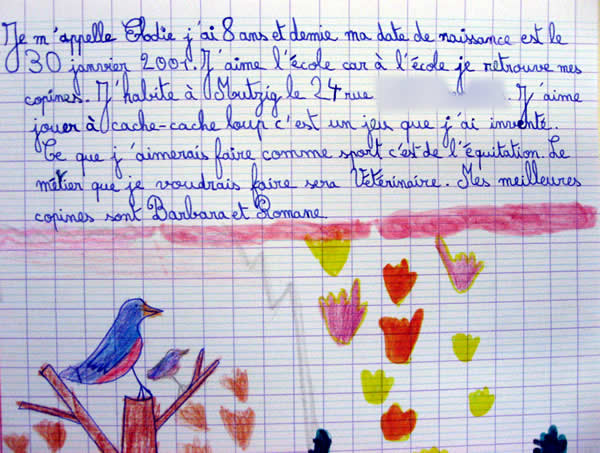 Je m'appelle Elodie j'ai 8 ans et demie ma date de naissance est le
30 janvier 2001. J'aime l'école car à l'école je retrouve mes
copines. J'habite à Mutzig le 24 rue . J'aime
jouer à cache-cache loup c'est un jeu que j'ai inventé.
Ce que j'aimerais faire comme sport c'est de l'équitation. Le
métier que je voudrais faire sera Vétérinaire. Mes meilleures
copines sont Barbara et Romane